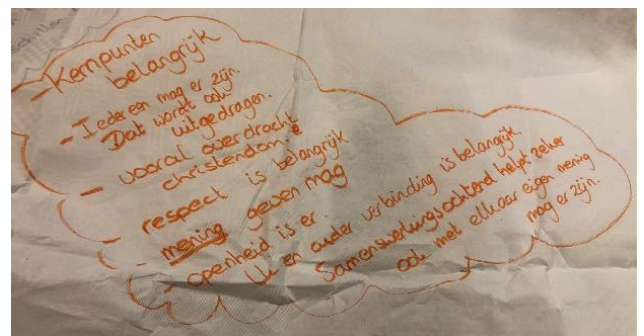 - Kernpunten
belangrijk
- Iedereen mag er zijn.
Dat wordt ook
uitgedragen.
- vooral overdracht
christendom
- respect is belangrijk
- mening geven mag
openheid is er.
en ouder verbinding is belangrijk.
Samenwerkingsochtend helpt zeker
ook met elkaar eigen mening
mag er zijn.